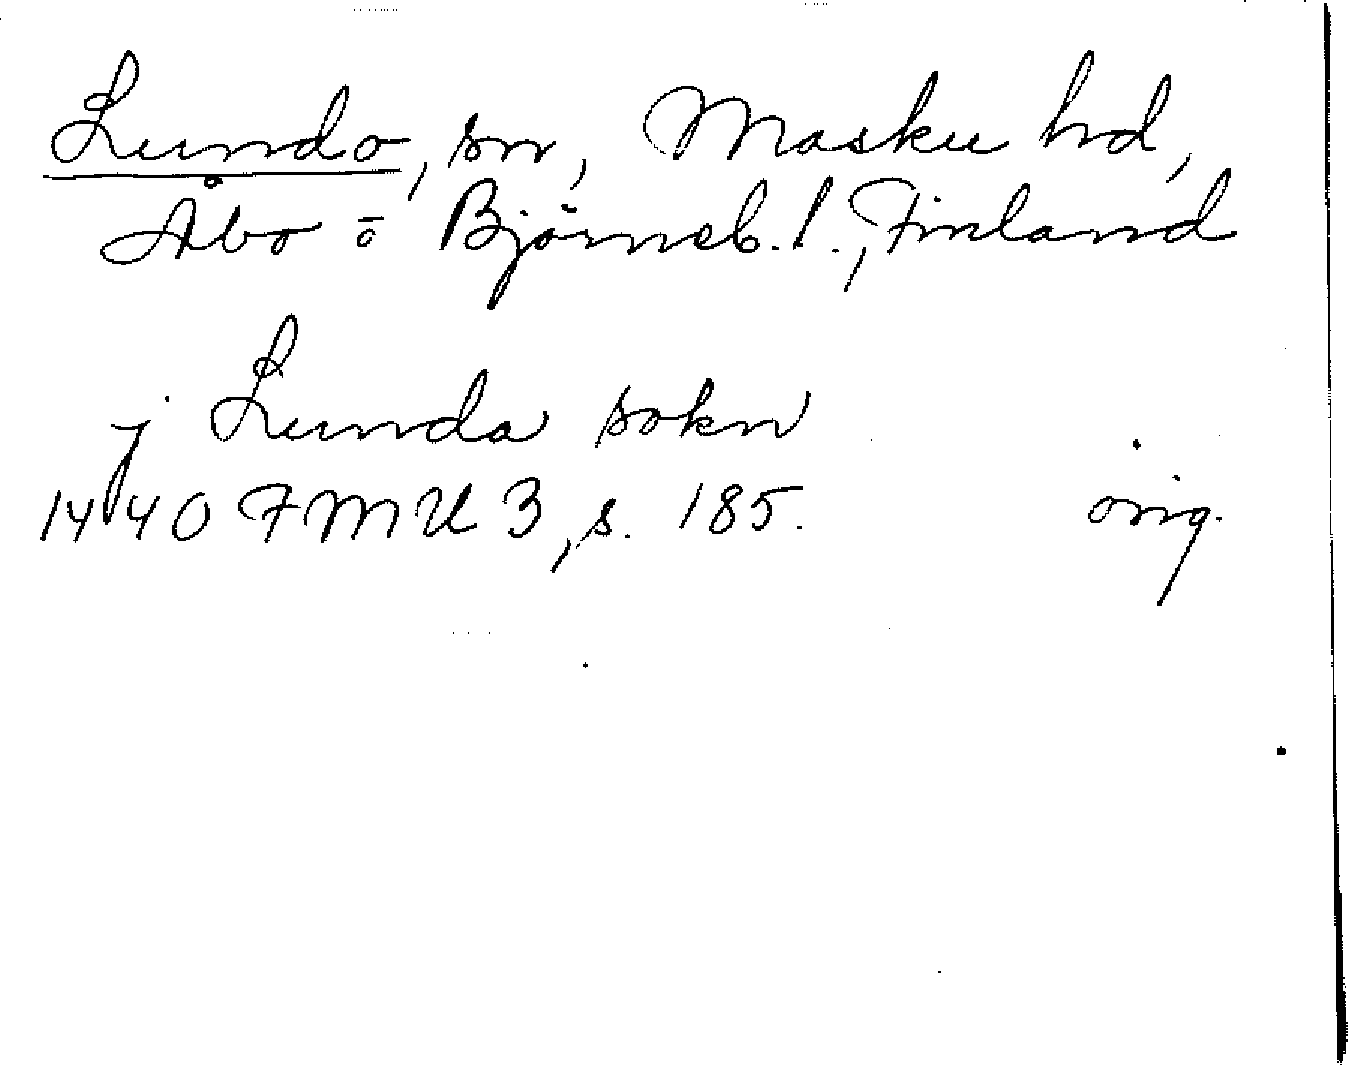 Lundo, sn, Masku hd,
Åbo ō Björneb. l., Finland
j Lunda sokn
1440 FMU 3, s. 185. orig.